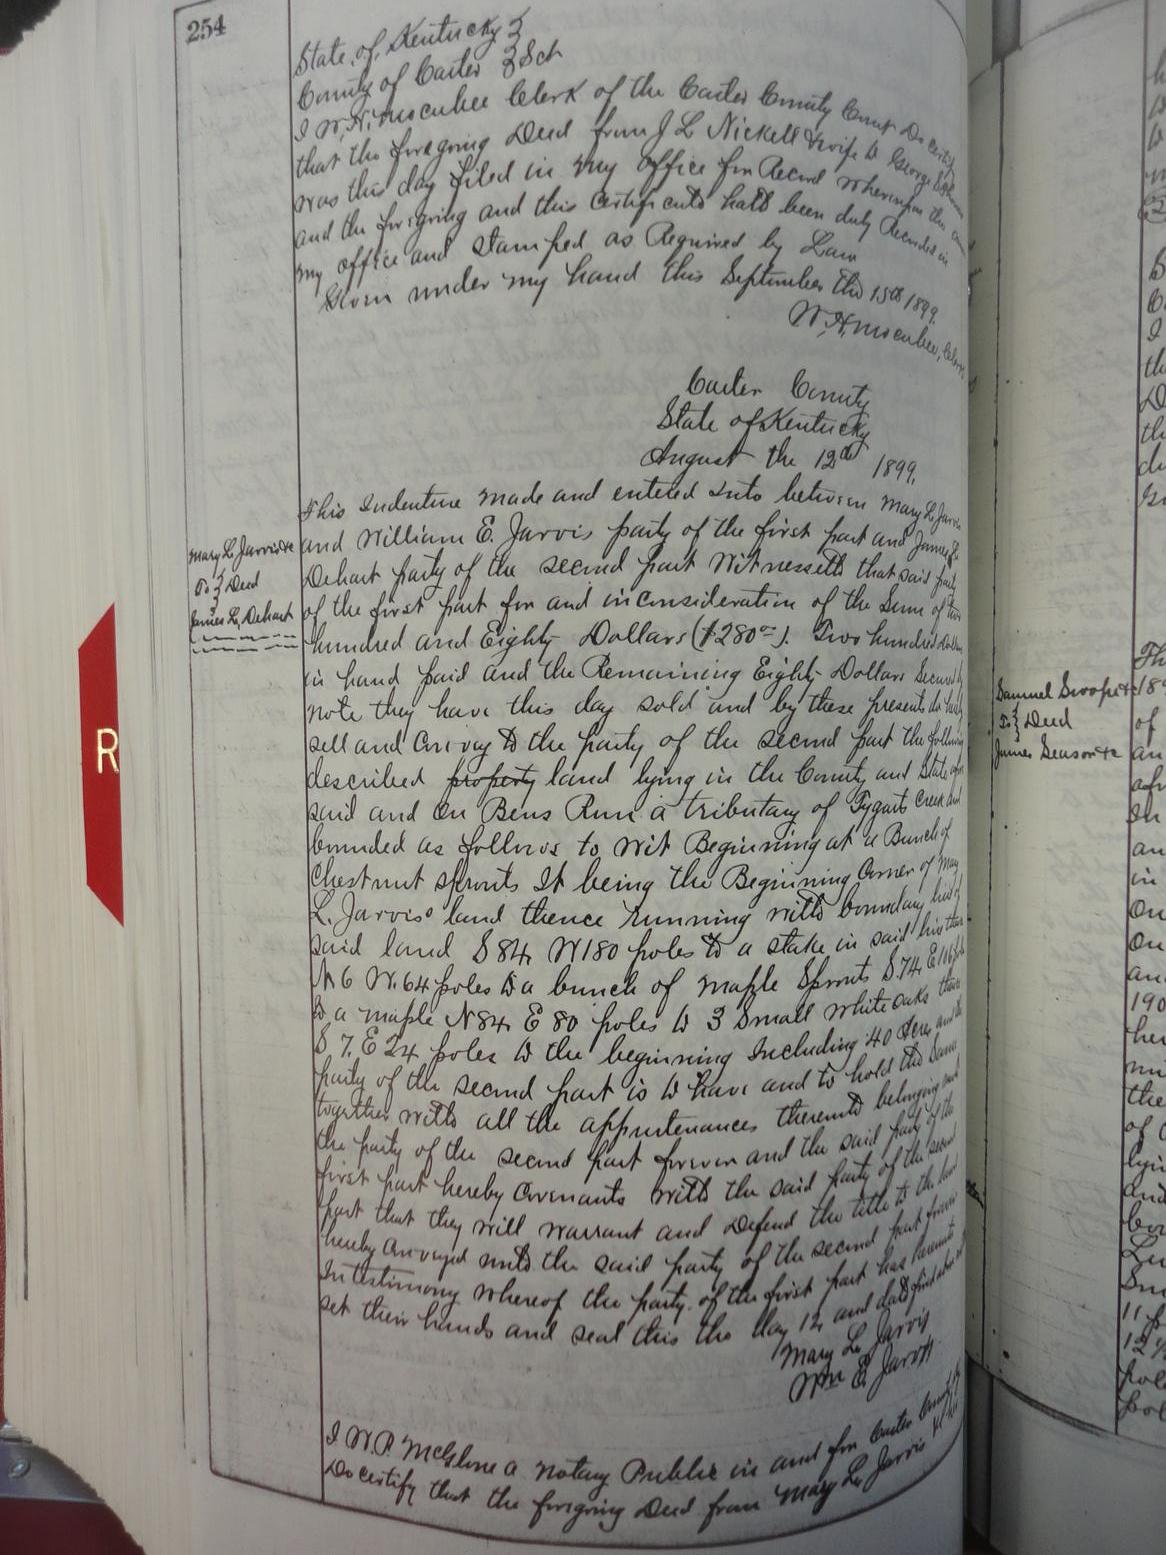 254
State of Kentucky }
County of Carter } Sct
I W. H. Mocabee Clerk of the Carter County Court Do certify
that the foregoing Deed from J L Nickell & wife to George
was this day filed in my office for Record whereupon the
and the foregoing and this certificate hath been duly Recorded in
my office and Stamped as Required by Law
Given under my hand this September the 15th 1899.
W. H. Mocabee, Clerk
Carter County
State of Kentucky
August the 12th 1899.
This Indenture made and entered into between Mary L. Jarvis
and William E. Jarvis party of the first part and James L.
Dehart party of the second part Witnesseth that said party
of the first part for and inconsideration of the Sum of two
hundred and Eighty Dollars ($280.00). Two hundred Dollars
in hand paid and the Remaining Eighty Dollars Secured by
note they have this day sold and by these presents do hereby
sell and Convey to the party of the second part the following
described property land lying in the County and State afore
said and On Bens Run a tributary of Tygarts Creek and
bounded as follows to wit Beginning at a Bunch of
Chestnut sprouts It being the Beginning Corner of Mary
L. Jarvis' land thence running with boundary line of
said land S 84, W 180 poles to a stake in said line thence
N. 6 W. 64 poles to a bunch of maple Sprouts S. 74, E 116 poles
to a maple N 84, E 80 poles to 3 Small white oaks thence
S 7. E 24 poles to the beginning Including 40 Acres and the
party of the second part is to have and to hold the Same
together with all the appurtenances thereunto belonging unto
the party of the second part forever and the said party of the
first part hereby Covenants with the said party of the second
part that they will warrant and Defend the title to the land
hereby Conveyed unto the said party of the second part forever
In testimony whereof the party of the first part has hereunto
set their hands and seal this the day 12, and date first above
Mary L. Jarvis
Wm E. Jarvis
I W. P. McGlone a Notary Public in and for Carter County Ky
Do certify that the foregoing Deed from Mary L. Jarvis &
Mary L. Jarvis &c
To } Deed
James L. Dehart
R
Samuel Swoope &c
To } Deed
James Season &c